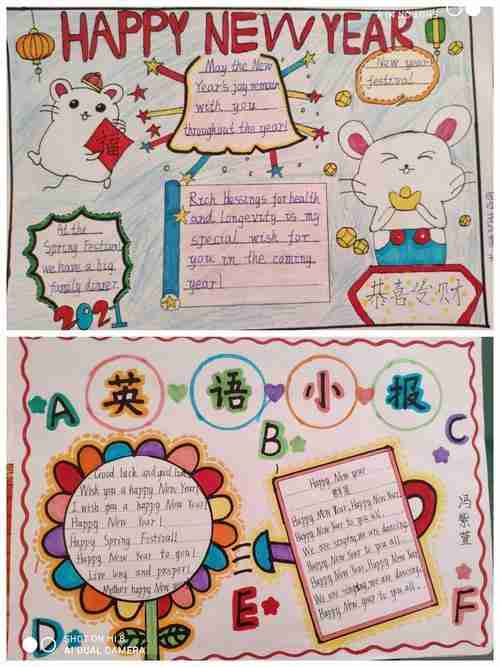 HAPPY NEW YEAR
May the New
Year's joy remain
with you
throughout the year!
New year
festival
福
Rich blessings for health
and longevity is my
special wish for
you in the coming
year!
At the
Spring Festival
we have a big
family dinner
2021
恭喜发财
英语小报
A
B
C
D
E
F
Good luck and good
Wish you a happy New Year!
I wish you a happy New Year!
Happy New Year!
Happy Spring Festival!
Happy New Year to you!
Live long and proper!
Mother happy New year
Happy New year
Happy New Year, Happy New Year,
Happy New Year to you all.
We are singing, we are dancing,
Happy New Year to you all.
Happy New Year, Happy New Year,
We are singing, we are dancing,
Happy New year to you all.
冯紫萱
SHOT ON MI 8
AI DUAL CAMERA